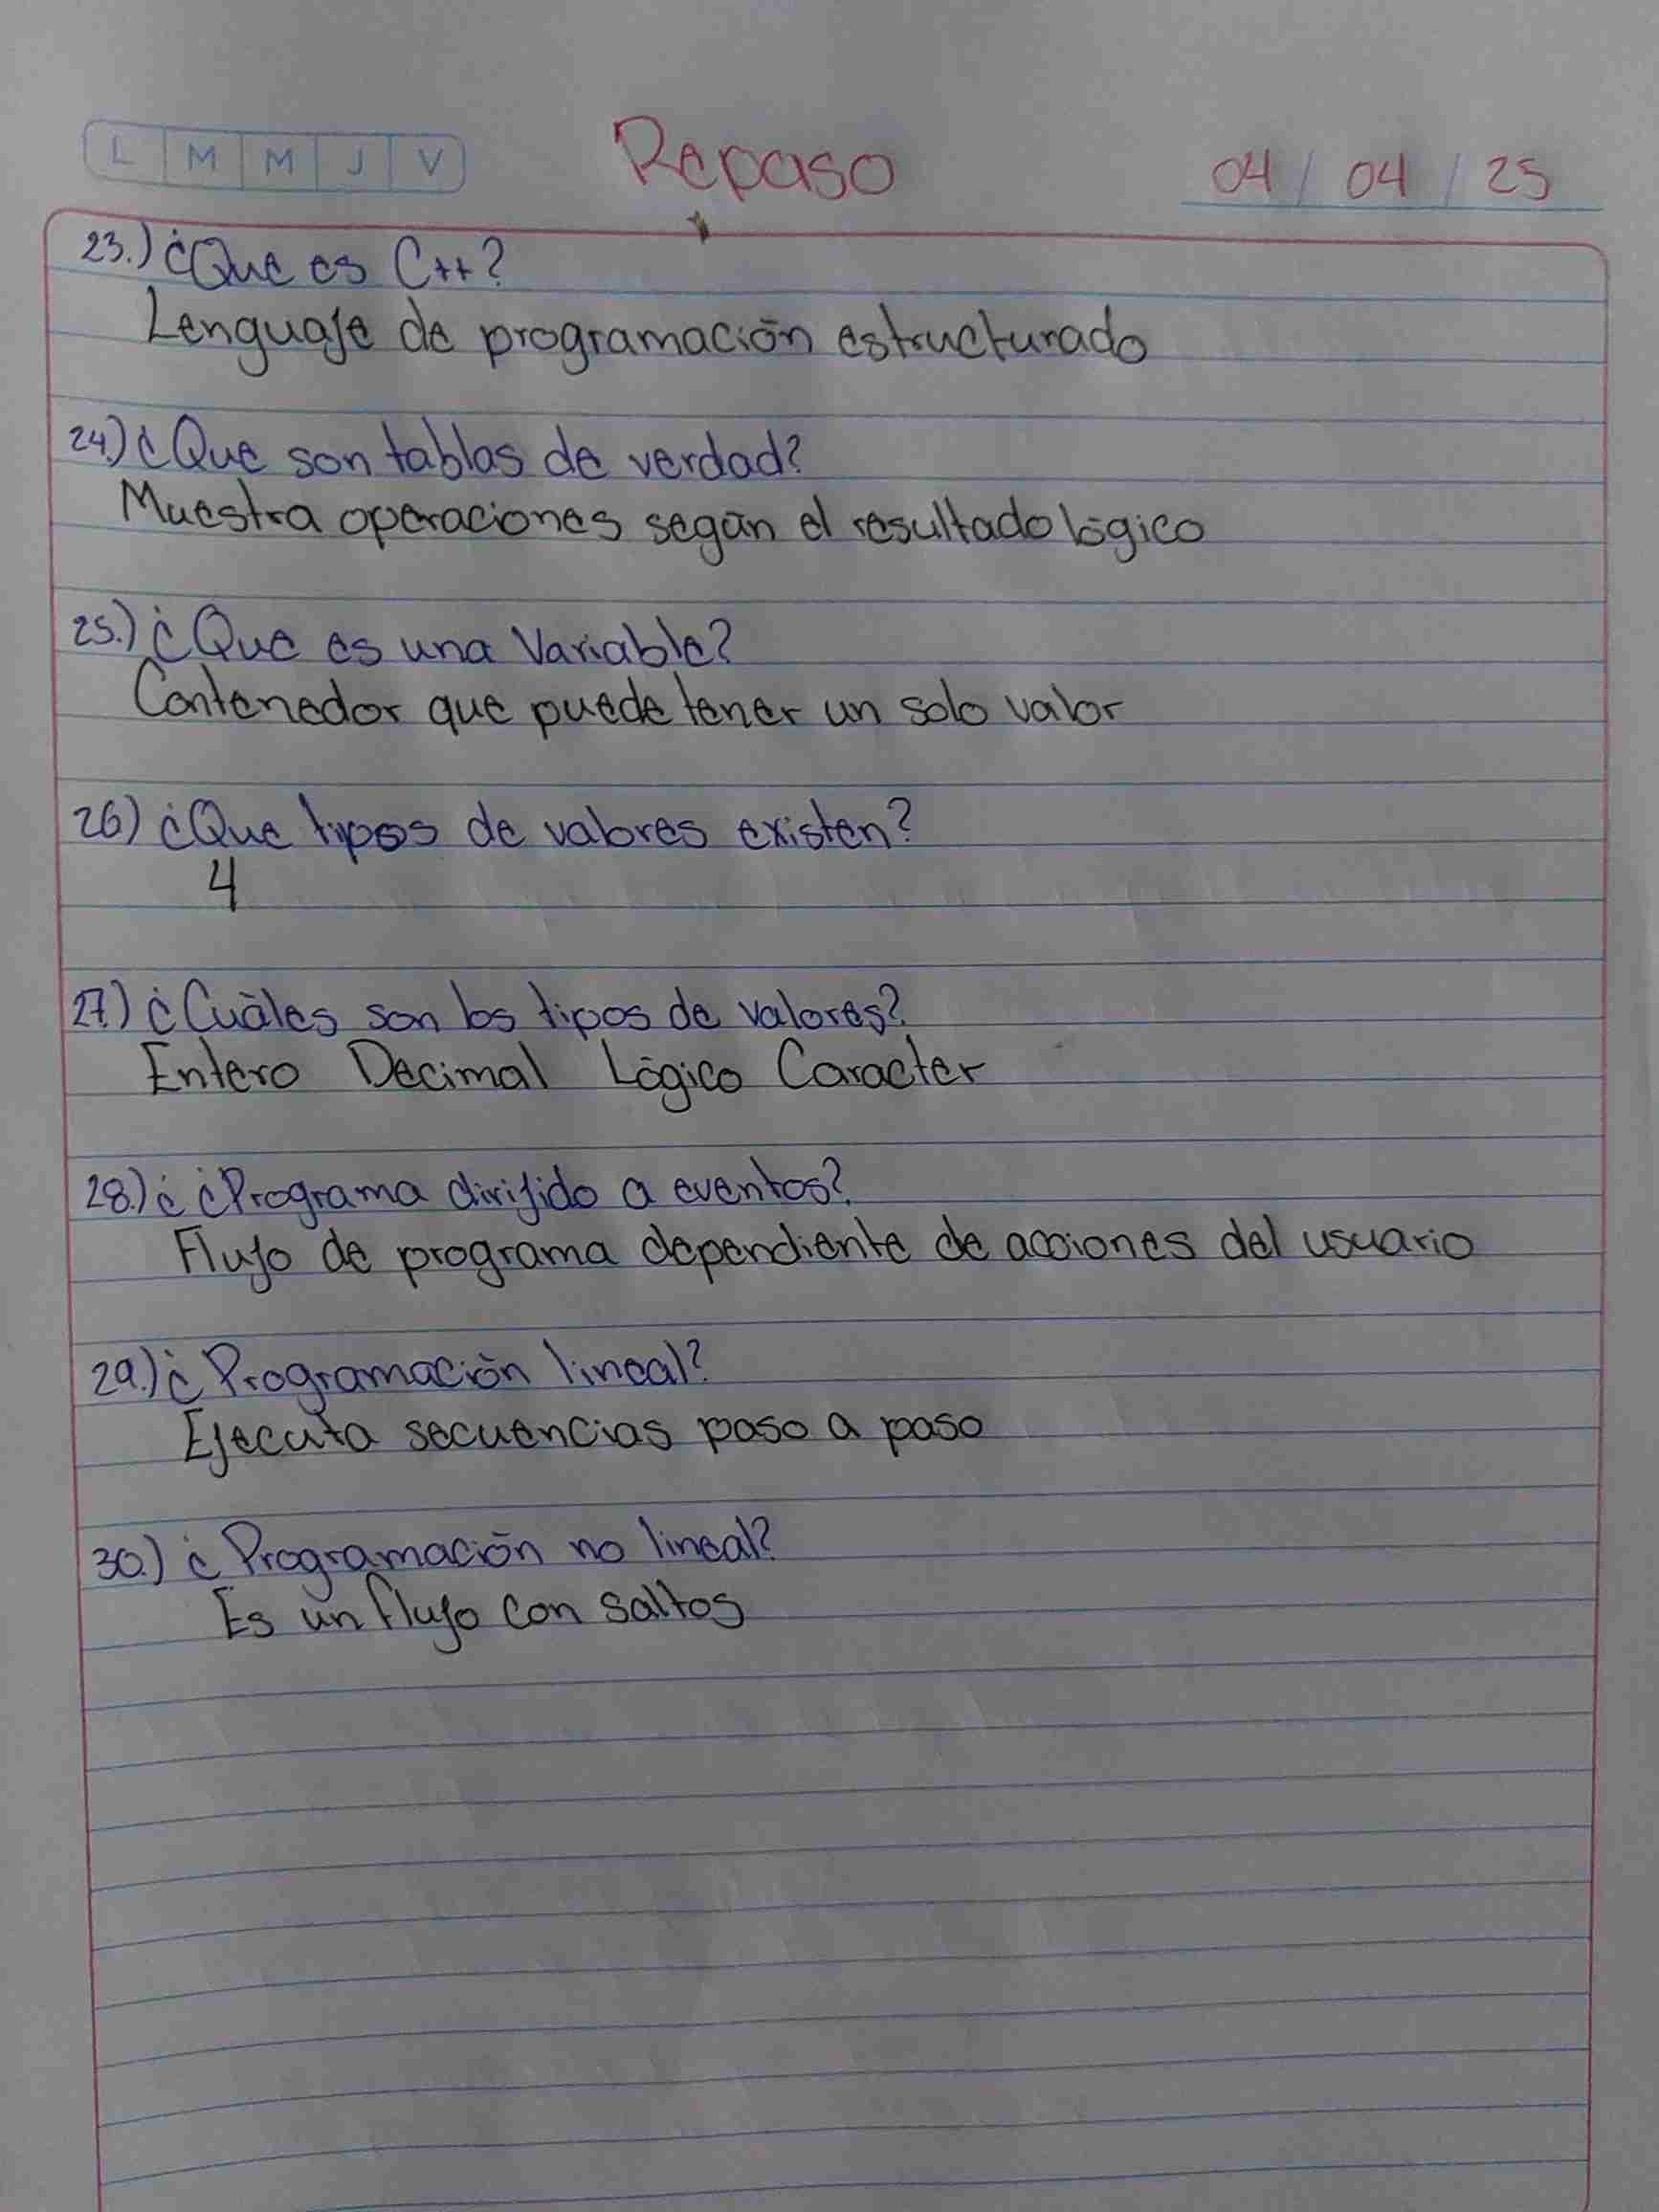 L M M J V
Repaso
04 / 04 / 25
23.) ¿Que es C++?
Lenguaje de programación estructurado
24.) ¿Que son tablas de verdad?
Muestra operaciones según el resultado lógico
25.) ¿Que es una Variable?
Contenedor que puede tener un solo valor
26) ¿Que tipos de valores existen?
4
27.) ¿Cuáles son los tipos de valores?
Entero Decimal Lógico Caracter
28.) ¿ ¿Programa dirijido a eventos?
Flujo de programa dependiente de acciones del usuario
29.) ¿Programación lineal?
Ejecuta secuencias paso a paso
30.) ¿Programación no lineal?
Es un flujo con saltos